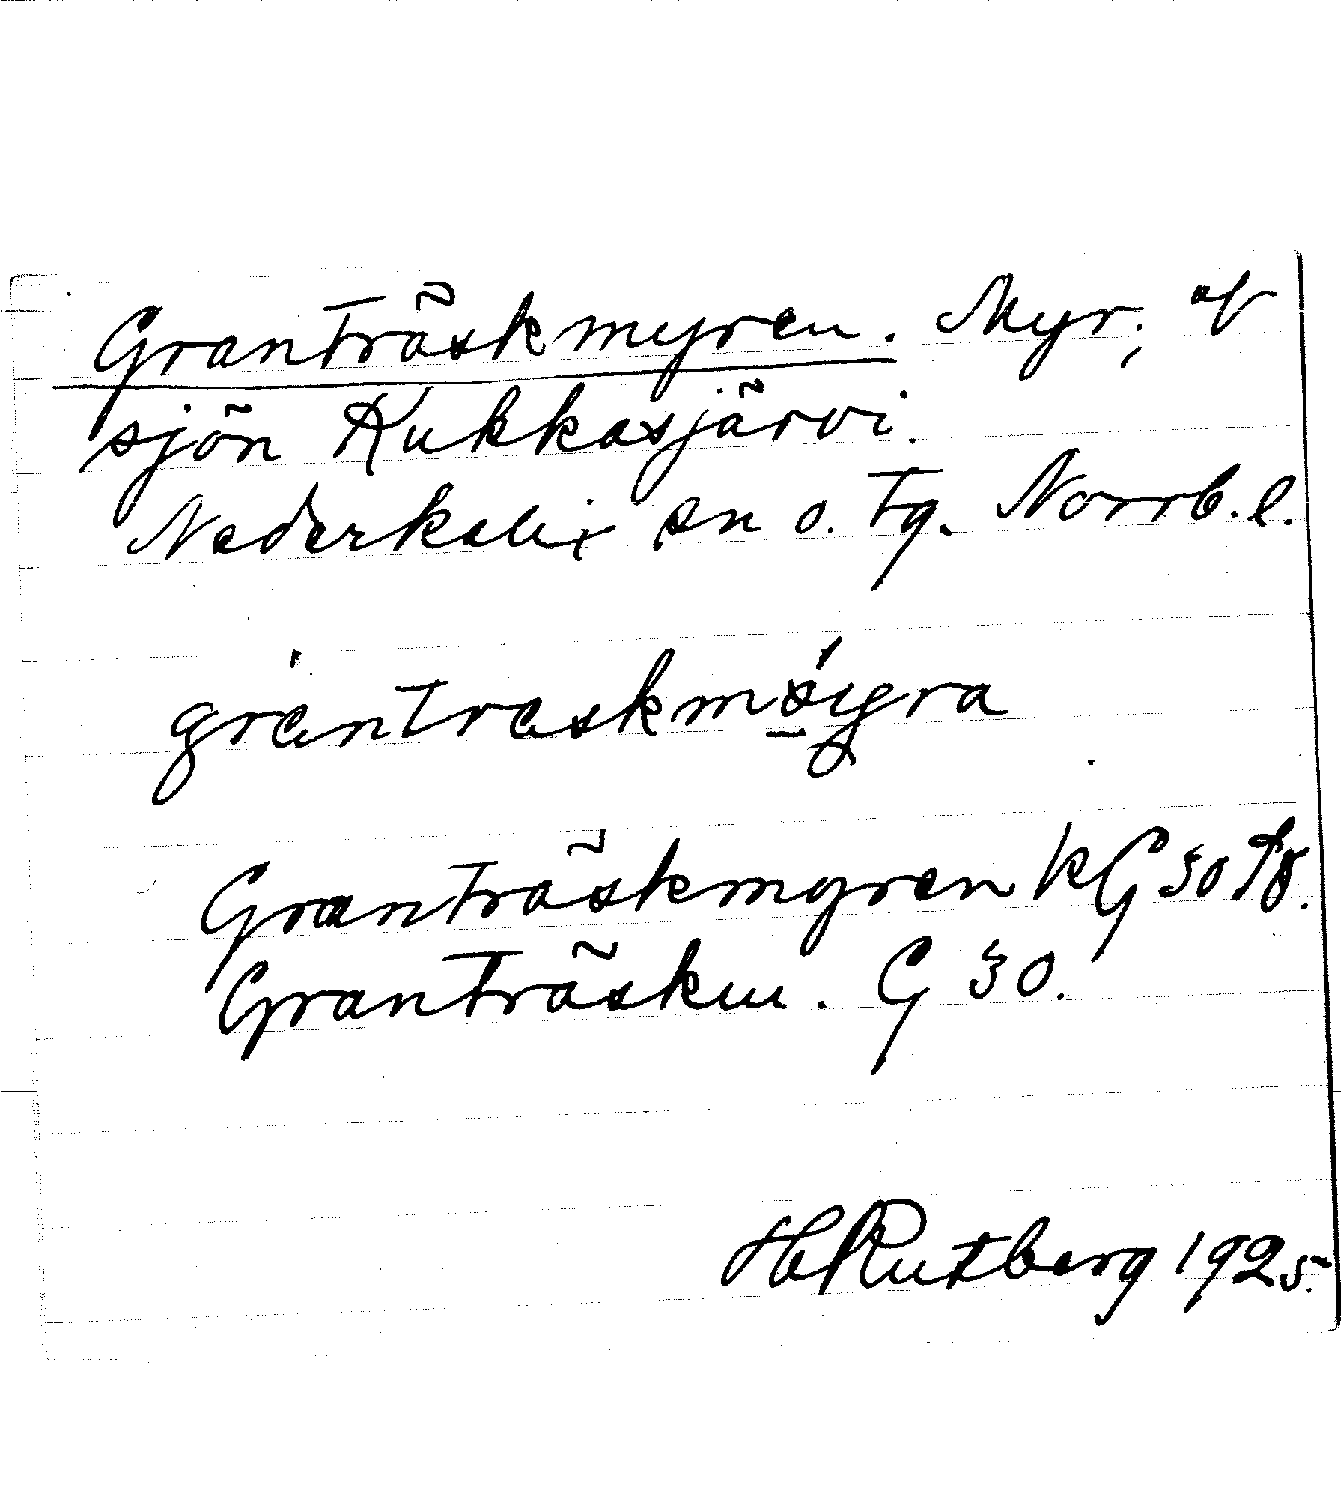 Granträskmyren. Myr; v
sjön Kukkasjärvi.
Nederkalix sn o. tg. Norrb. l.
gràntraskmöyra
Granträskmyren kG 30
Granträskm. G 30.
H Rutberg 1925.